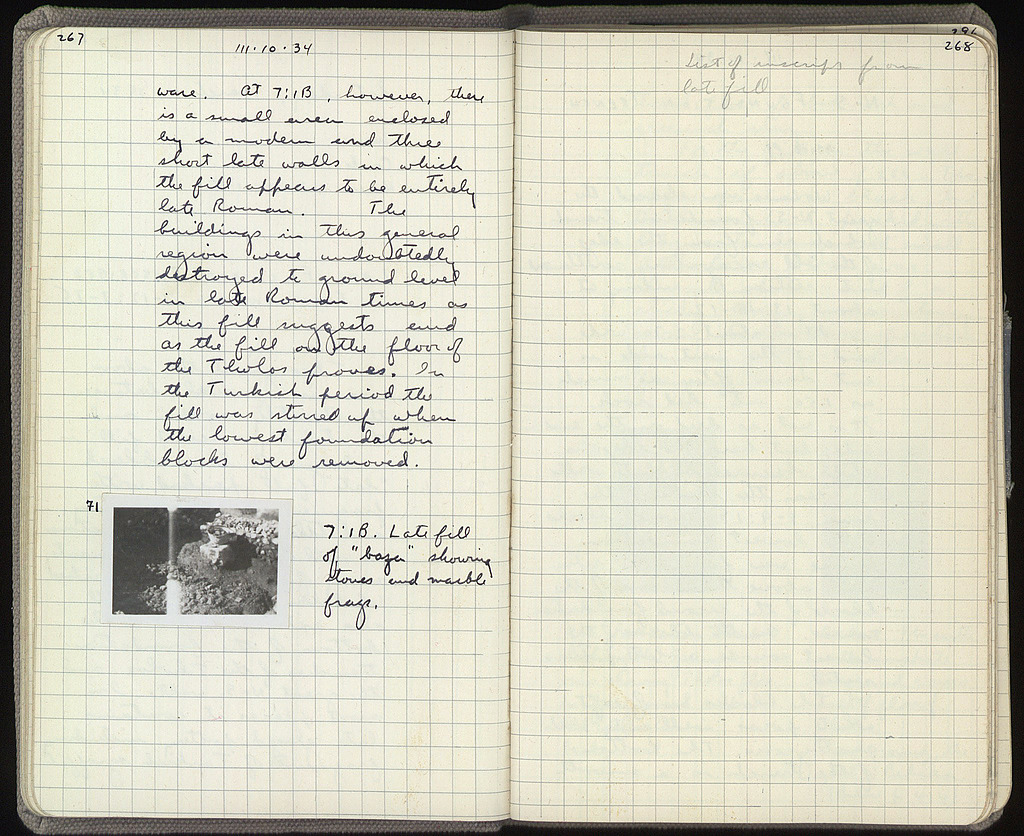 267
111·10·34
ware. At 7:1B, however, there
is a small area enclosed
by a modern and three
short late walls in which
the fill appears to be entirely
late Roman. The
buildings in this general
region were undoubtedly
destroyed to ground level
in late Roman times as
this fill suggests and
as the fill on the floor of
the Tholos proves. In
the Turkish period the
fill was stirred up when
the lowest foundation
blocks were removed.
71
7:1B. Late fill
of "baza" showing
stones and marble
frags.
268
List of inscrips from
late fill